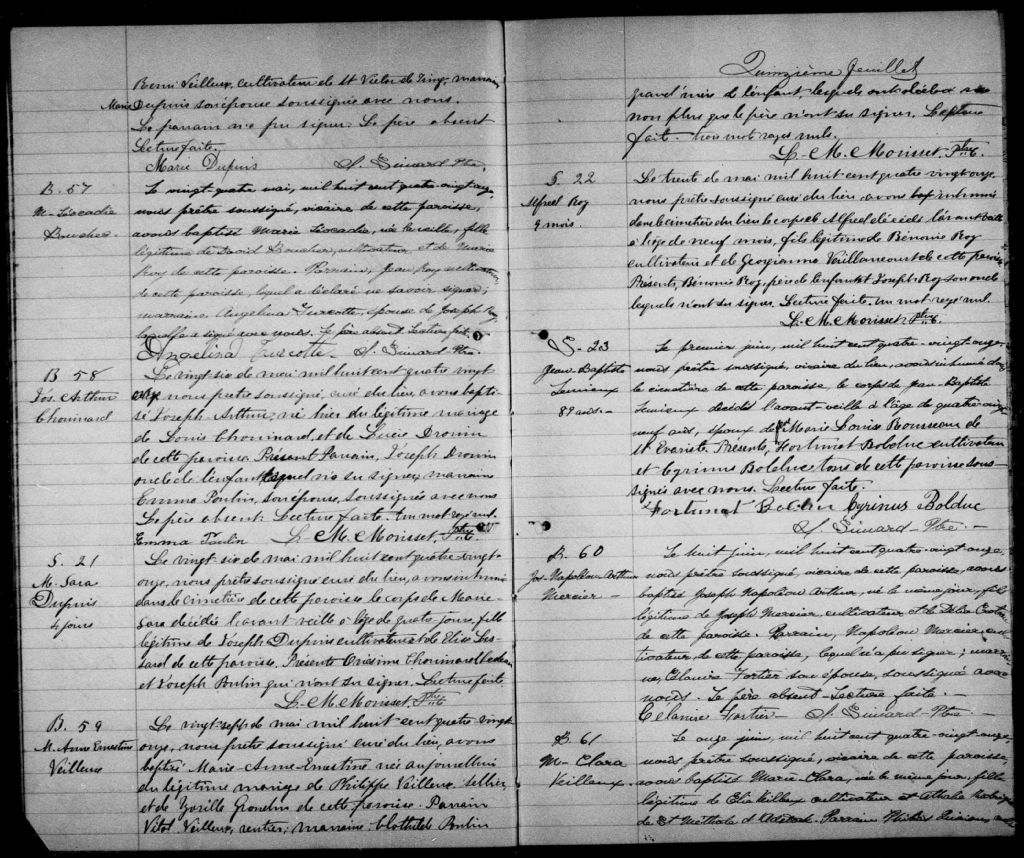 Remi Veilleux, cultivateur de St Victor de Tring, marraine
Marie Dupuis son épouse soussignée avec nous.
Le parrain n'a pu signer. Le père absent
Lecture faite.
Marie Dupuis J. Simard Ptre
B. 57
M- Léocadie
Boucher
Le vingt quatre mai, mil huit cent quatre-vingt onze
nous prêtre soussigné, vicaire de cette paroisse,
avons baptisé Marie Léocadie, née la veille, fille
légitime de David Boucher, cultivateur et de Marie
Roy de cette paroisse. Parrain, Jean Roy cultivateur
de cette paroisse, lequel a déclaré ne savoir signer;
marraine Angelina Turcotte, épouse de Joseph Roy
laquelle a signé avec nous. Le père absent. Lecture faite.
Angelina Turcotte. J. Simard Ptre.
B 58
Jos. Arthur
Chouinard
Le vingt six de mai mil huit cent quatre vingt
onze nous prêtre soussigné, curé du lieu, avons bapti-
sé Joseph Arthur, né hier du légitime mariage
de Louis Chouinard et de Lucie Drouin
de cette paroisse. Présent Parrain, Joseph Drouin
oncle de l'enfant lequel n'a su signer, marraine
Emma Poulin, son épouse, soussignée avec nous
Le père absent. Lecture faite. Un mot rayé nul.
Emma Poulin L. M. Morisset, Ptre
S. 21
M. Sara
Dupuis
4 jours
Le vingt six de mai mil huit cent quatre vingt-
onze, nous prêtre soussigné curé du lieu, avons inhumé
dans le cimetière de cette paroisse le corps de Marie-
Sara décédée l'avant veille à l'âge de quatre jours, fille
légitime de Joseph Dupuis cultivateur et de Elise Les-
sard de cette paroisse. Présents Onésime Chouinard bedeau
et Joseph Poulin qui n'ont su signer. Lecture faite
L. M. Morisset, Ptre
B. 59
M. Anne Ernestine
Veilleux
Le vingt-sept de mai mil huit cent quatre vingt
onze, nous prêtre soussigné curé du lieu, avons
baptisé Marie Anne-Ernestine née aujourd'hui
du légitime mariage de Philippe Veilleux sellier
et de Zoraïlle Grondin de cette paroisse. Parrain
Vital Veilleux, rentier, marraine Clothilde Poulin
Quinzième feuillet
grand'mère de l'enfant, lesquels ont déclaré ne
non plus que le père n'ont su signer. Lecture
faite. trois mots rayés nuls.
L. M. Morisset, Ptre
S. 22
Alfred Roy
9 mois.
Le trente de mai mil huit cent quatre vingt onze,
nous prêtre soussigné curé du lieu, avons inhumé
dans le cimetière du lieu le corps de Alfred décédé l'avant veille
à l'âge de neuf mois, fils légitime de Bénonie Roy
cultivateur et de Georgianna Vaillancourt de cette paroisse
Présents, Bénonie Roy, père de l'enfant et Joseph Roy son oncle
lesquels n'ont su signer. Lecture faite. Un mot rayé nul.
L. M. Morisset, Ptre.
S- 23
Jean-Baptiste
Lemieux
89 ans-
Le premier juin, mil huit cent quatre-vingt onze,
nous prêtre soussigné, vicaire du lieu, avons inhumé dans
le cimetière de cette paroisse, le corps de Jean-Baptiste
Lemieux décédé l'avant-veille à l'âge de quatre-vingt
neuf ans, époux de Marie Louise Rousseau de
St Evariste. Présents, Fortunat Bolduc cultivateur
et Cyrinus Bolduc tous de cette paroisse sous-
signés avec nous. Lecture faite.
Fortunat Bolduc Cyrinus Bolduc
J. Simard Ptre -
B. 60
Jos. Napoléon Arthur
Mercier -
Le huit juin, mil huit cent quatre-vingt onze,
nous prêtre soussigné, vicaire de cette paroisse, avons
baptisé Joseph Napoléon Arthur, né le même jour, fils
légitime de Joseph Mercier, cultivateur, et de Délia
de cette paroisse. Parrain, Napoléon Mercier cul-
tivateur, de cette paroisse, lequel n'a pu signer; marrai-
ne, Elanire Fortier son épouse, soussignée avec
nous. Le père absent. Lecture faite. -
Célanire Fortier - J. Simard Ptre -
B. 61
M- Clara
Veilleux.
Le onze juin, mil huit cent quatre-vingt onze,
nous prêtre soussigné, vicaire de cette paroisse,
avons baptisé Marie-Clara, née le même jour, fille
légitime de Elie Veilleux cultivateur et Athalie
de St Méthode d'Adstock. Parrain